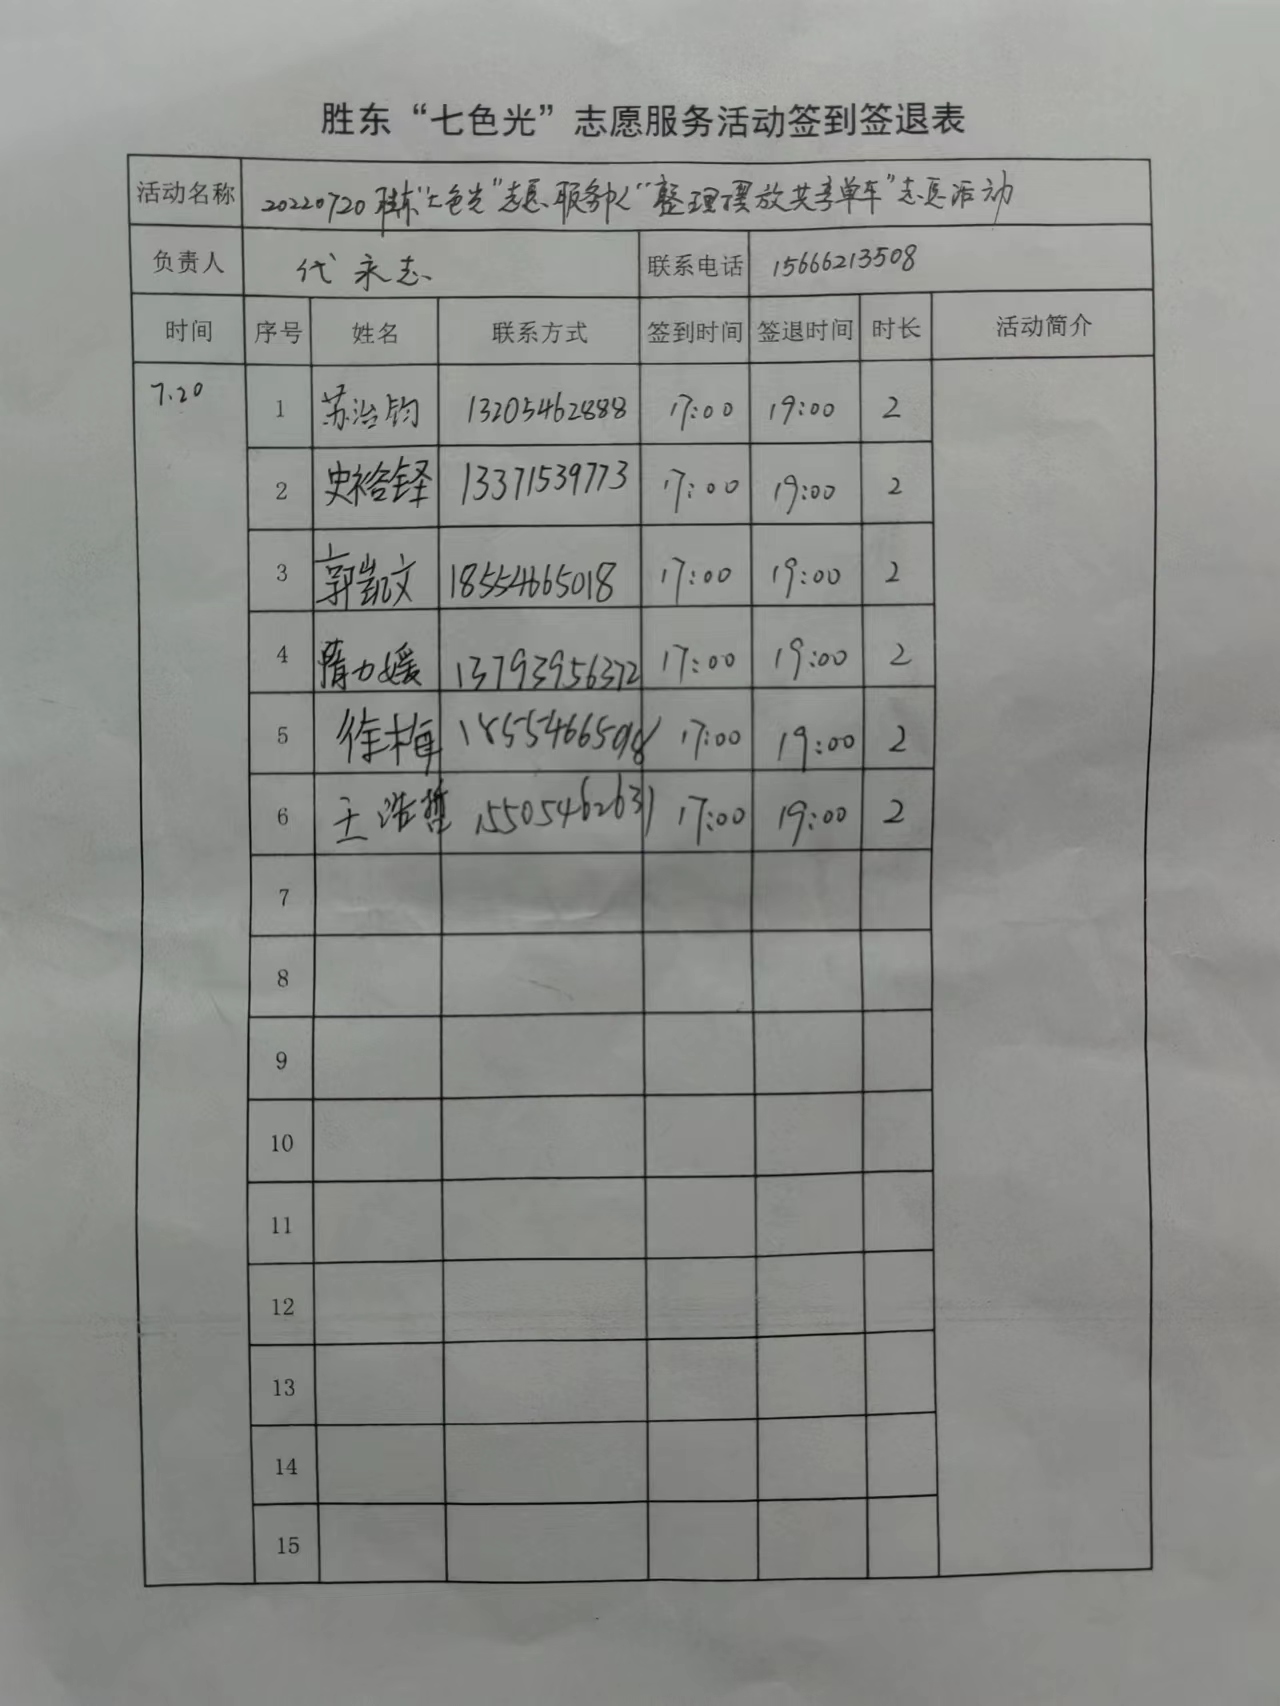 胜东“七色光”志愿服务活动签到签退表
活动名称 20220720胜东“七色光”志愿服务队“整理摆放共享单车”志愿活动
负责人 代永志 联系电话 15666213508
时间 序号 姓名 联系方式 签到时间 签退时间 时长 活动简介
7.20 1 苏治钧 13205462888 17:00 19:00 2
2 史裕铎 13371539773 17:00 19:00 2
3 郭凯文 18554665018 17:00 19:00 2
4 隋力媛 13793956372 17:00 19:00 2
5 徐梅 18554665098 17:00 19:00 2
6 王浩哲 15505462631 17:00 19:00 2
7
8
9
10
11
12
13
14
15